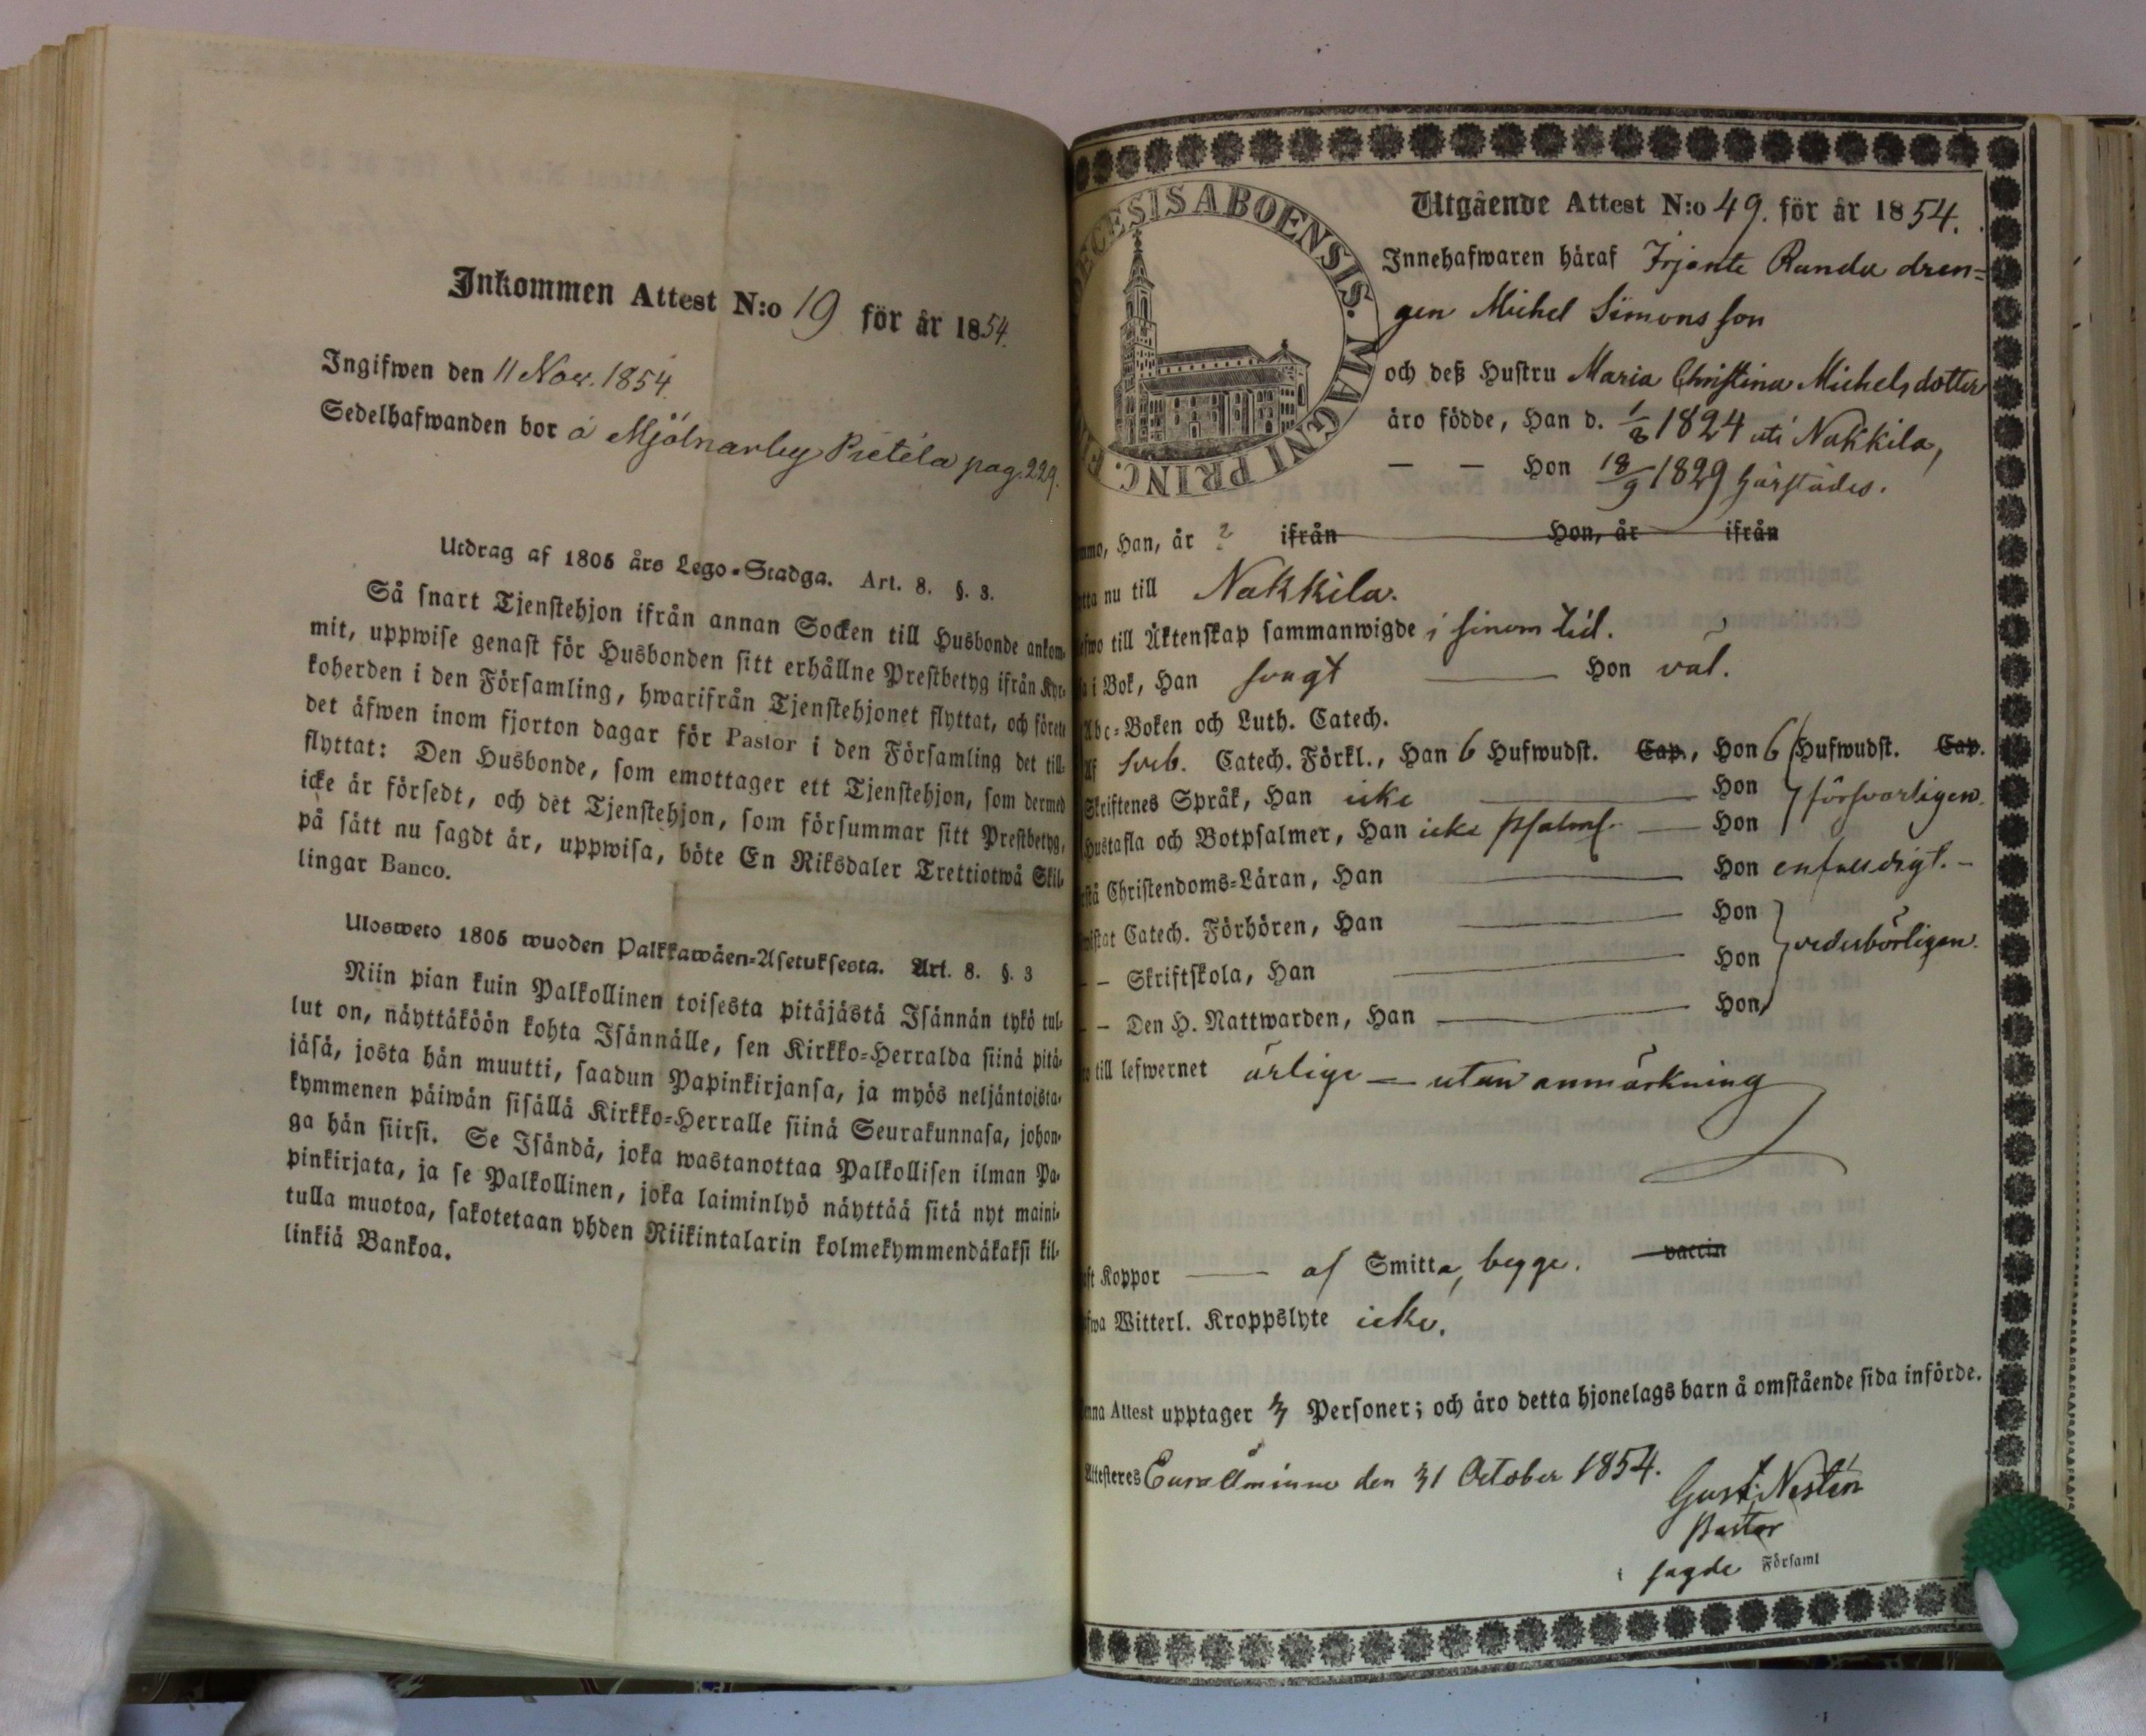 Inkommen Attest N:o 19 för år 1854.
Ingifwen den 11 Nov. 1854.
Sedelhafwanden bor å Mjölnarby Pietilä pag. 229.
Utdrag af 1805 års Lego-Stadga. Art. 8. §. 3.
Så snart Tjenstehjon ifrån annan Socken till Husbonde ankom-
mit, uppwise genast för Husbonden sitt erhållne Prestbetyg ifrån Kyr-
koherden i den Församling, hwarifrån Tjenstehjonet flyttat, och förete
det äfwen inom fjorton dagar för Pastor i den Församling det till-
flyttat: Den Husbonde, som emottager ett Tjenstehjon, som dermed
icke är försedt, och det Tjenstehjon, som försummar sitt Prestbetyg,
på sätt nu sagdt är, uppwisa, böte En Riksdaler Trettiotwå Skil-
lingar Banco.
Ulosweto 1805 wuoden Palkkawäen-Asetuksesta. Art. 8. §. 3
Niin pian kuin Palkollinen toisesta pitäjästä Isännän tykö tul-
lut on, näyttäköön kohta Isännälle, sen Kirkko-Herralda siinä pitä-
jäsä, josta hän muutti, saadun Papinkirjansa, ja myös neljäntoista-
kymmenen päiwän sisällä Kirkko-Herralle siinä Seurakunnasa, johon-
ga hän siirsi. Se Isändä, joka wastanottaa Palkollisen ilman Pa-
pinkirjata, ja se Palkollinen, joka laiminlyö näyttää sitä nyt maini-
tulla muotoa, sakotetaan yhden Riikintalarin kolmekymmendäkaksi kil-
linkiä Bankoa.
ECESIS ABOENSIS. MAGNI PRINC.
Utgående Attest N:o 49. för år 1854.
Innehafwaren häraf Irjante Runda dren=
gen Michel Simonsson
och deß Hustru Maria Christina Michelsdotter
äro födde, Han d. 1/8 1824 uti Nakkila,
— — Hon 18/9 1829 härstädes.
Han, år ? ifrån Hon, år ifrån
nu till Nakkila.
till Äktenskap sammanwigde i sinom tid.
i Bok, Han svagt Hon väl.
Abc-Boken och Luth. Catech.
Af Sveb. Catech. Förkl., Han 6 Hufwudst. Cap., Hon 6 Hufwudst. Cap.
Skriftenes Språk, Han icke Hon försvarligen.
Hustafla och Botpsalmer, Han icke psalmf. Hon
Christendoms-Läran, Han Hon enfaldigt. –
Catech. Förhören, Han Hon
– – Skriftskola, Han Hon vederbörligen.
– – Den H. Nattwarden, Han Hon
till lefwernet ärlige — utan anmärkning
Koppor — af Smitta, begge. vaccin
Witterl. Kroppslyte icke.
Attest upptager 3 Personer; och äro detta hjonelags barn å omstående sida införde.
Attesteres Euraåminne den 31 October 1854.
Gust. Nestén
Pastor
i sagde Församl